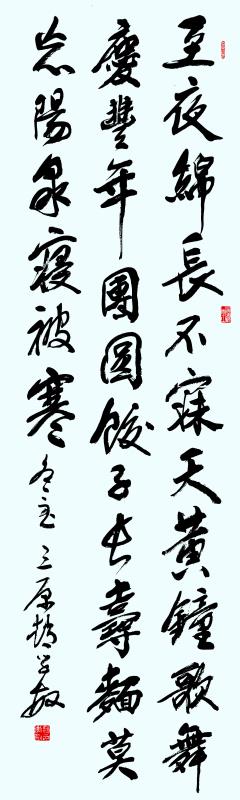 至夜綿長不寐天黃鐘歌舞
慶豐年團圓餃子长壽麵莫
忘陽泉寢被寒 冬至 三原